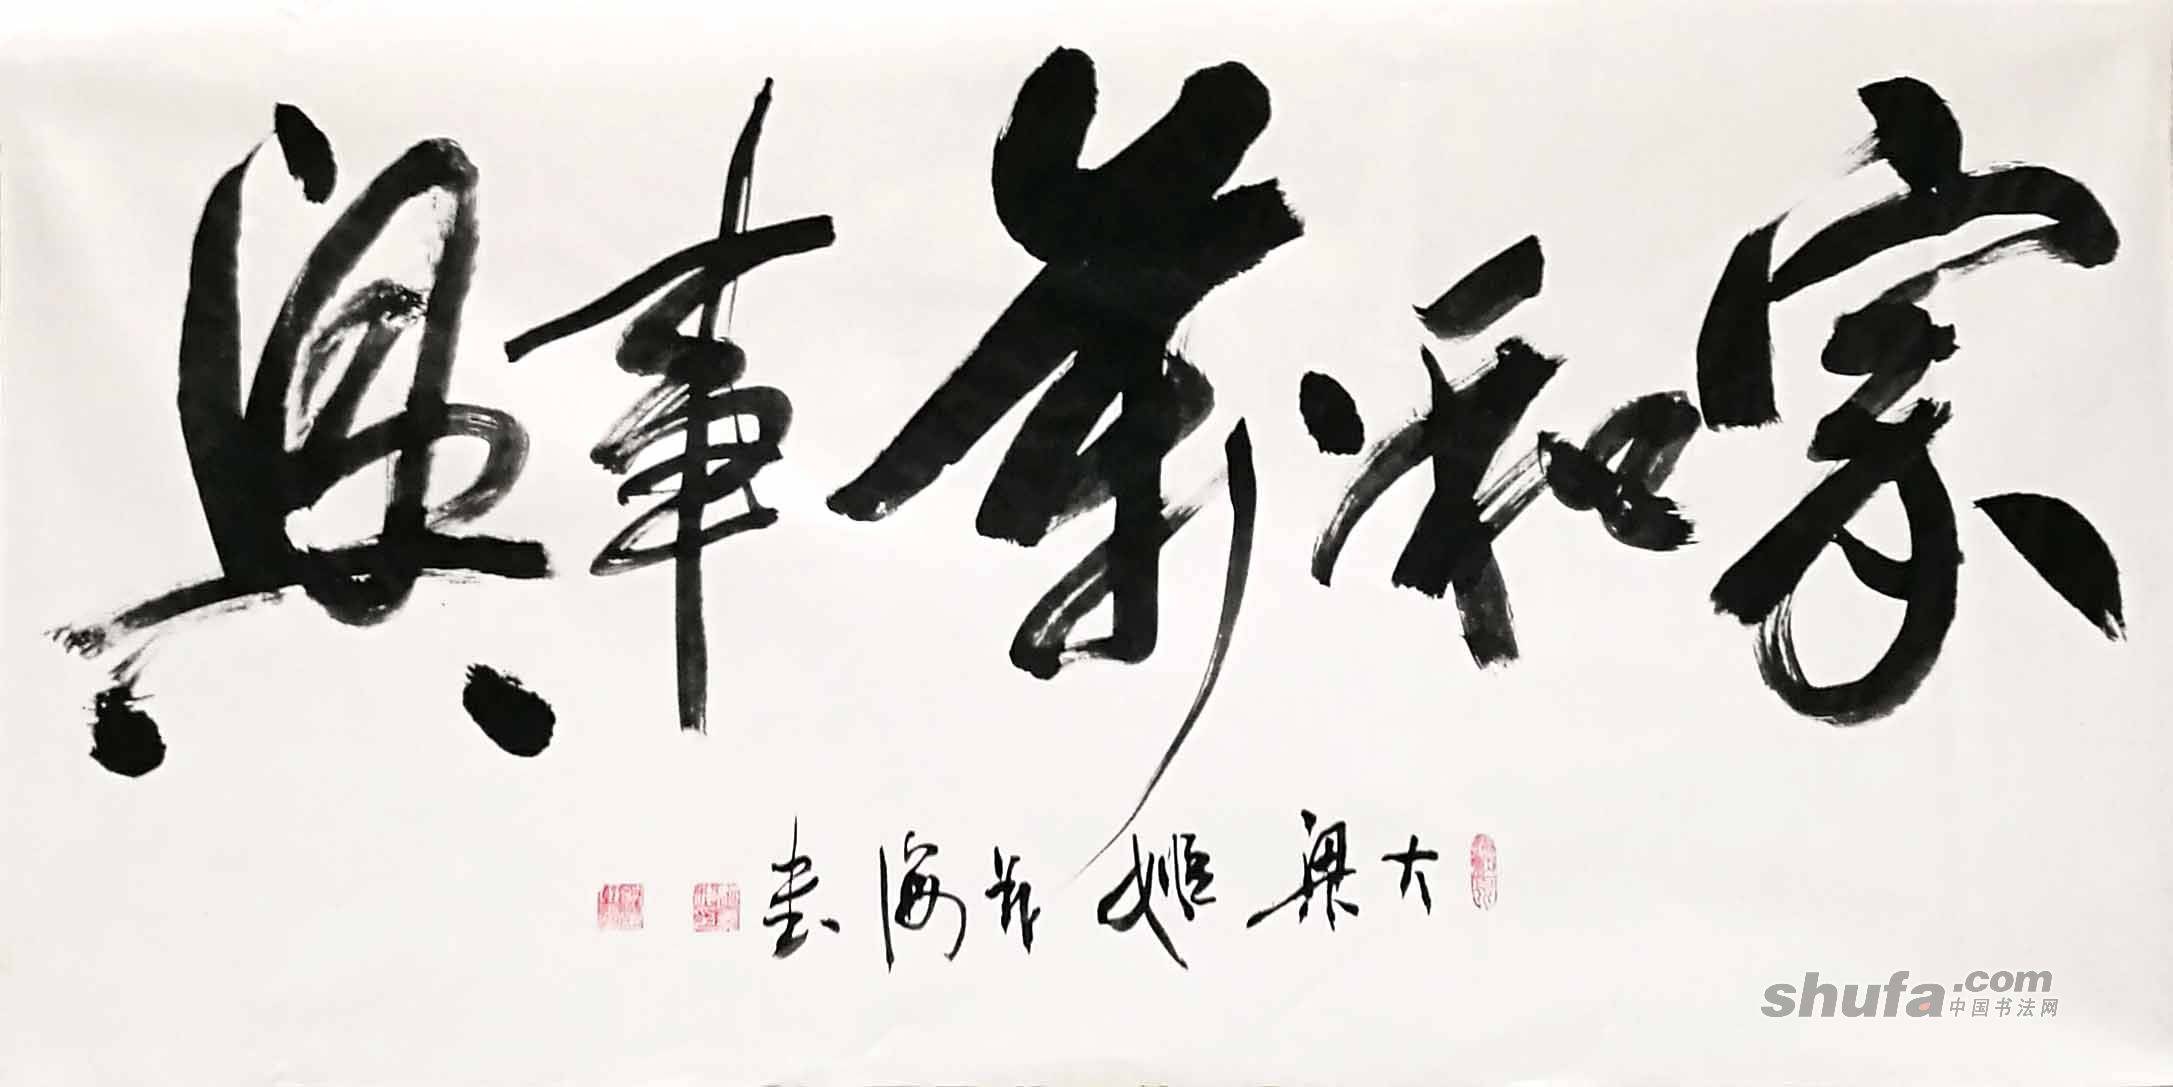 家和萬事興
大梁姬海書
shufa.com
中国书法网